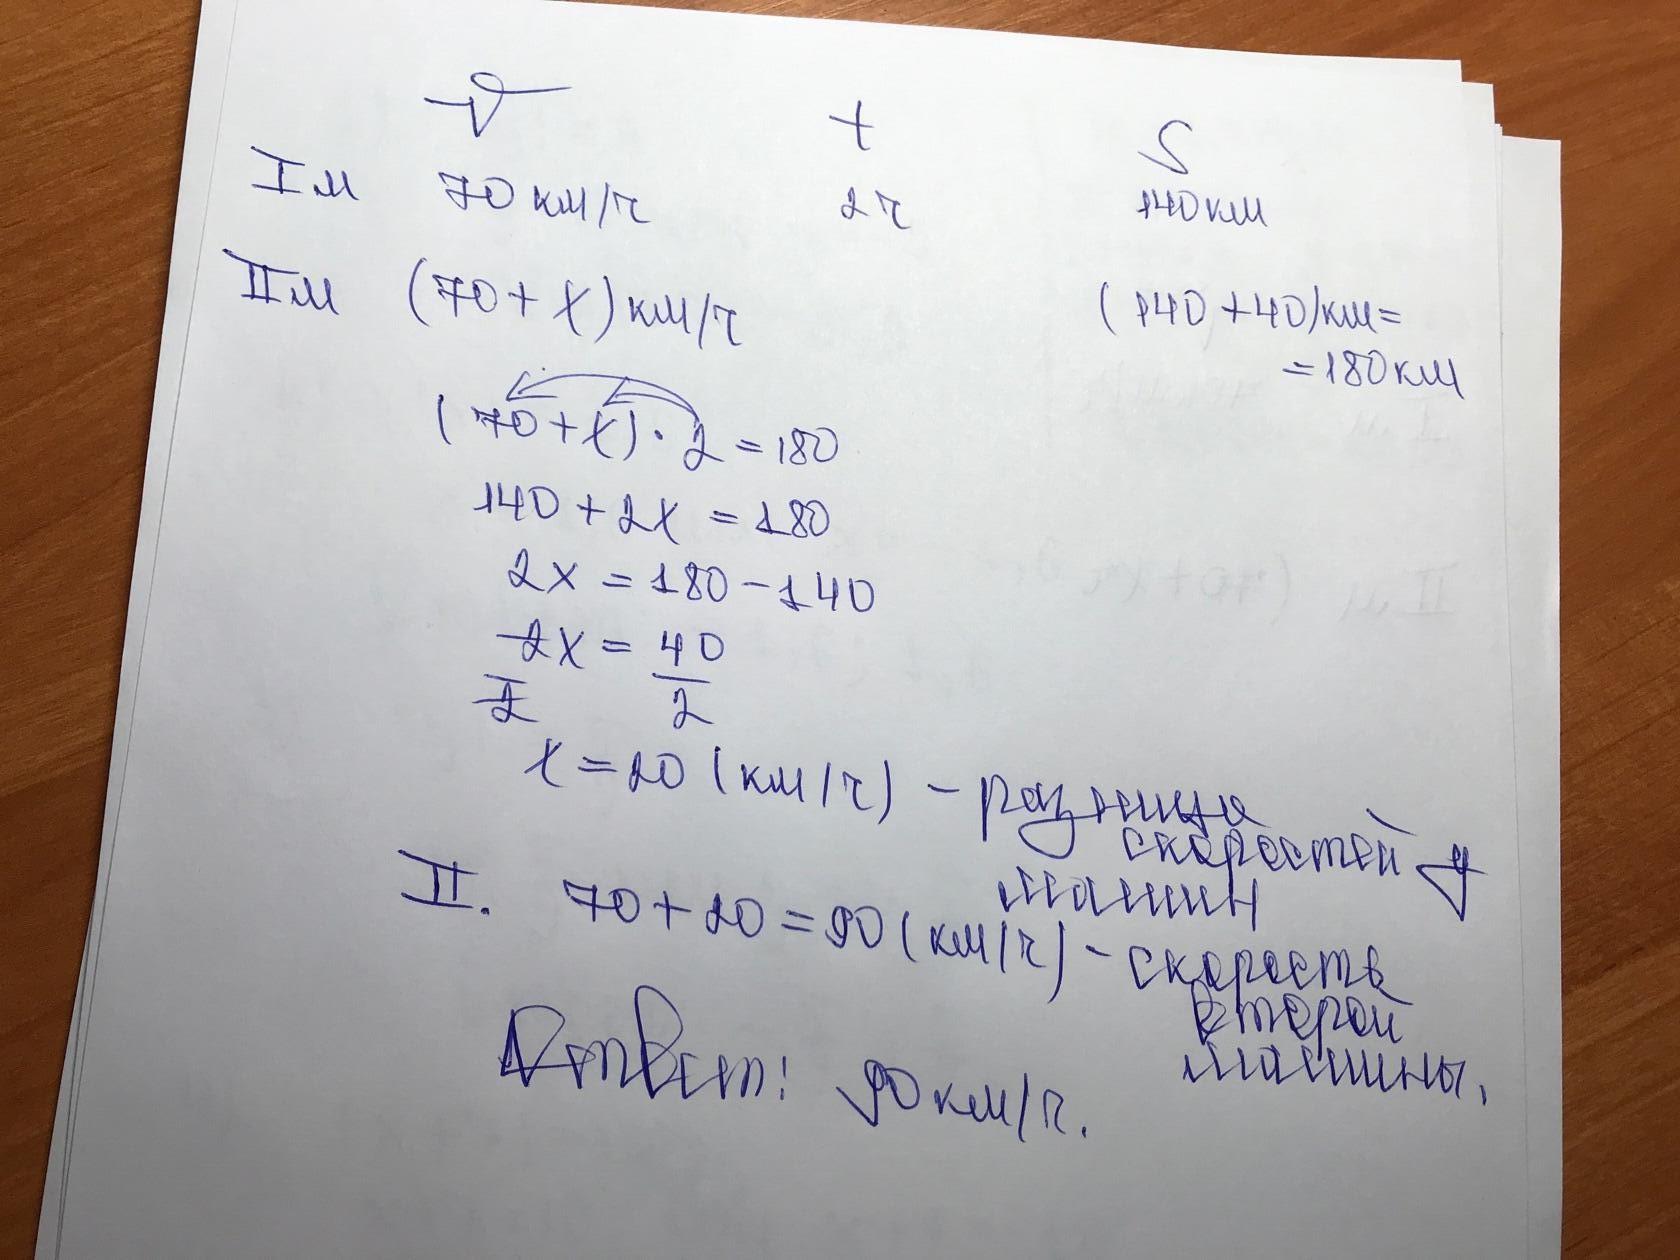 v t S
I м 70 км/ч 2 ч 140 км
II м (70 + x) км/ч (140 + 40) км =
= 180 км
(70 + x) · 2 = 180
140 + 2x = 180
2x = 180 - 140
2x = 40
2 2
x = 20 (км/ч) - разница
скоростей у
машин
II. 70 + 20 = 90 (км/ч) - скорость
второй
машины.
Ответ: 90 км/ч.